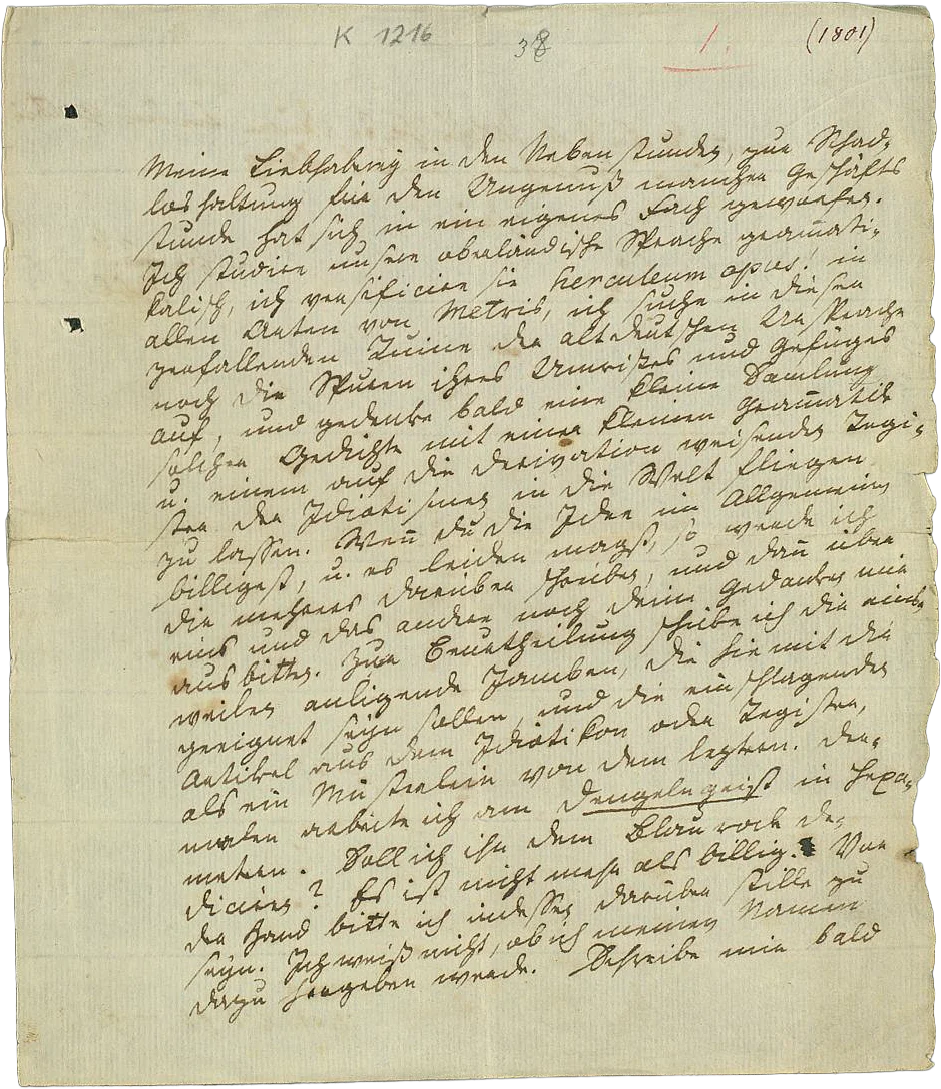 K 1216
38
1.
(1801)
Meine Liebhaberey in den Nebenstunden, zur Schad-
loshaltung für den Ungenuß mancher Geschäfts
stunde hat sich in ein eigenes Fach geworfen.
Ich studire unsere oberländische Sprache gram̄ati-
kalisch, ich versificire sie herculeum opus! in
allen Arten von Metris, ich suche in dieser
zerfallenden Ruine der altdeutschen Ursprache
noch die Spuren ihres Umrisses und Gefüges
auf, und gedenke bald eine kleine Samlung
solcher Gedichte mit einer kleinen Gram̄atik
u. einem auf die Derivation weisenden Regi-
ster der Idiotismen in die Welt fliegen
zu lassen. Wen̄ du die Idee im Allgemeinen
billigest, u. es leiden magst, so werde ich
dir mehrers darüber schreiben, und dan̄ über
eins und das andere noch deine Gedanken mir
ausbitten. Zur Beurtheilung schike ich dir einst-
weilen anligende Jamben, die hiemit dir
geeignet seyn sollen, und die einschlagenden
Artikel aus dem Idiotikon oder Register,
als ein Müsterlein von dem leztern. Der-
malen arbeite ich am Dengelegeist in Hexa-
metern. Soll ich ihn dem Blaurock de-
diciren? Es ist nicht mehr als billig. Vor
der Hand bitte ich indessen darüber stille zu
seyn. Ich weiß nicht, ob ich meinen Namen
dazu hergeben werde. Schreibe mir bald